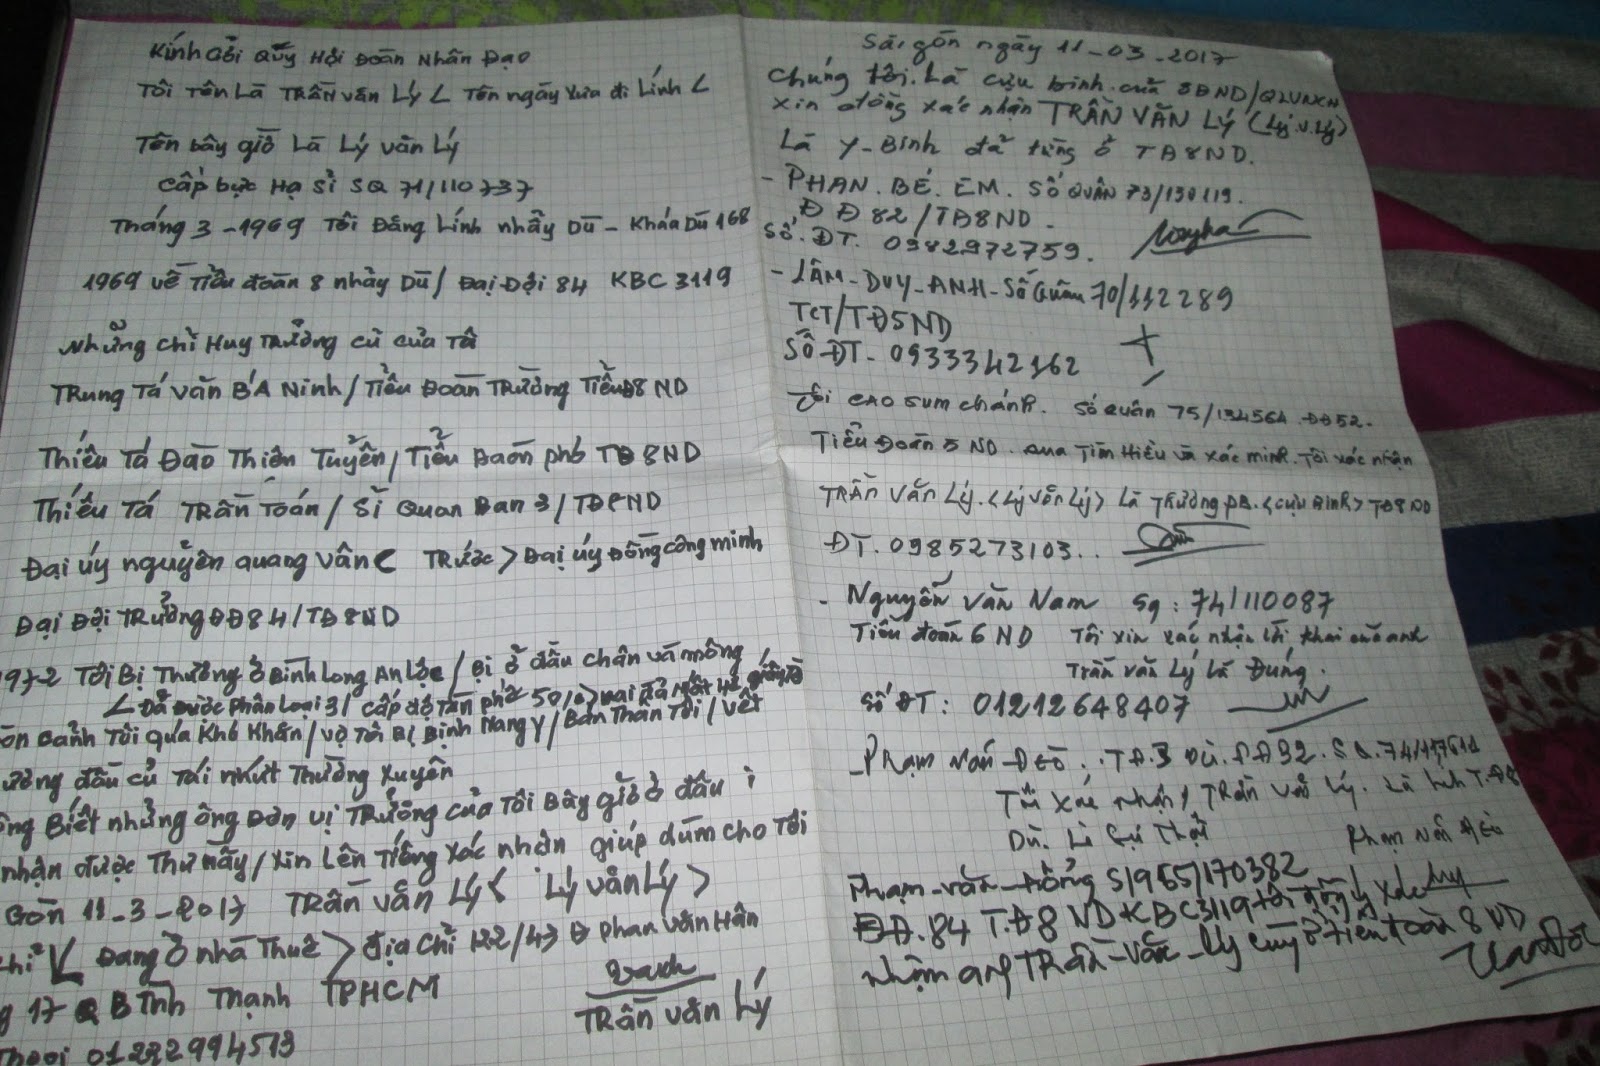 Kính Gởi Qũy Hội Đoàn Nhân Đạo
Tôi Tên Là TRẦN Văn Lý < Tên ngày xưa đi Lính <
Tên bây giờ Là Lý Văn Lý
Cấp bực Hạ Sỉ SQ 71/110737
Tháng 3 - 1969 Tôi Đăng Lính nhẩy Dù - Khóa Dù 168
1969 về Tiểu đoàn 8 nhảy Dù / Đại Đội 84 KBC 3119
Những chỉ Huy Trưởng củ của Tôi
TRung Tá Văn BÁ Ninh / Tiểu Đoàn TRưởng Tiểu Đ8 ND
Thiếu Tá Đào Thiện Tuyển / Tiểu Đaòn phó TĐ8ND
Thiếu Tá TRẦN Toán / Sỉ Quan Ban 3 / TĐ8ND
Đại úy nguyễn quang Vân < TRước > Đại úy Đồng công minh
Đại Đội TRưởng ĐĐ84/TĐ8ND
1972 Tôi Bị Thương ở Bình Long An Lộc / Bị ở đầu chân và mông /
< Đả Được Phân Loại 3 / cấp độ Tàn phế 50%
oàn cảnh Tôi quá Khó Khăn / vợ Tôi Bị Bịnh Nang y / Bản Thân Tôi / vết
ương đầu củ Tái nhứt Thường Xuyên
ng Biết những ông Đơn vị TRưởng của Tôi Bây giờ ở đâu
nhận được Thư nầy / Xin Lên Tiếng Xác nhận giúp dùm cho Tôi
Gòn 11-3-2017 TRẦN Văn Lý < Lý Văn Lý >
chỉ < Đang ở nhà Thuê > địa chỉ 122/43 Đ Phan Văn Hân
g 17 Q Bình Thạnh TPHCM
Thoại 01222994513
TRẦN Văn Lý
Sài gòn ngày 11-03-2017
Chúng tôi. Là cựu binh của 8ĐND/QLVNCH
xin đồng xác nhận TRẦN VĂN LÝ (Lý.V.Lý)
Là Y-Binh đã từng ở TĐ8ND.
- PHAN. BÉ. EM. SỐ QUÂN 73/130119.
ĐĐ82/TĐ8ND.
Số. ĐT. 0982972759.
- LÂM-DUY-ANH-Số Quân 70/112289
TCT/TĐ5ND
SỐ-ĐT- 0933342162
Tôi CAO SUM Chánh. Số Quân 75/134564 ĐĐ52.
Tiểu Đoàn 5 ND. Qua Tìm Hiểu và xác minh. Tôi xác nhận
TRẦN Văn Lý. <Lý Văn Lý> Là Thương PB. <Cựu Binh> TĐ8ND
ĐT. 0985273103..
- Nguyễn Văn Nam Sq: 74/110087
Tiểu đoàn 6 ND Tôi xin xác nhận lời khai của anh
Trần Văn Lý là Đúng.
Số ĐT: 01212648407
- Phạm Văn Đeo; TĐ.3 Dù.
Tôi Xác nhận / Trần Văn Lý. Là lính T.Đ8
Dù. Là Sự Thật
Phạm Văn Đeo
Phạm-văn-
ĐĐ.84 T.Đ8 ND KBC 3119 tôi đồng ý xác
nhận anh TRần-văn-Lý cùng ở tiểu đoàn 8 ND